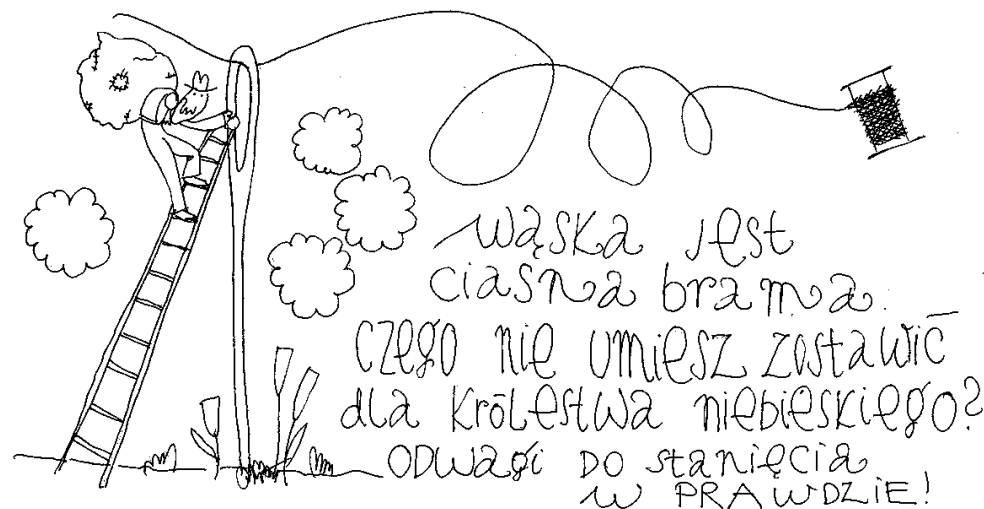 wąska jest
ciasna brama.
czego nie umiesz zostawić
dla królestwa niebieskiego?
ODWAgi DO stanięcia
w PRAWDZIE!